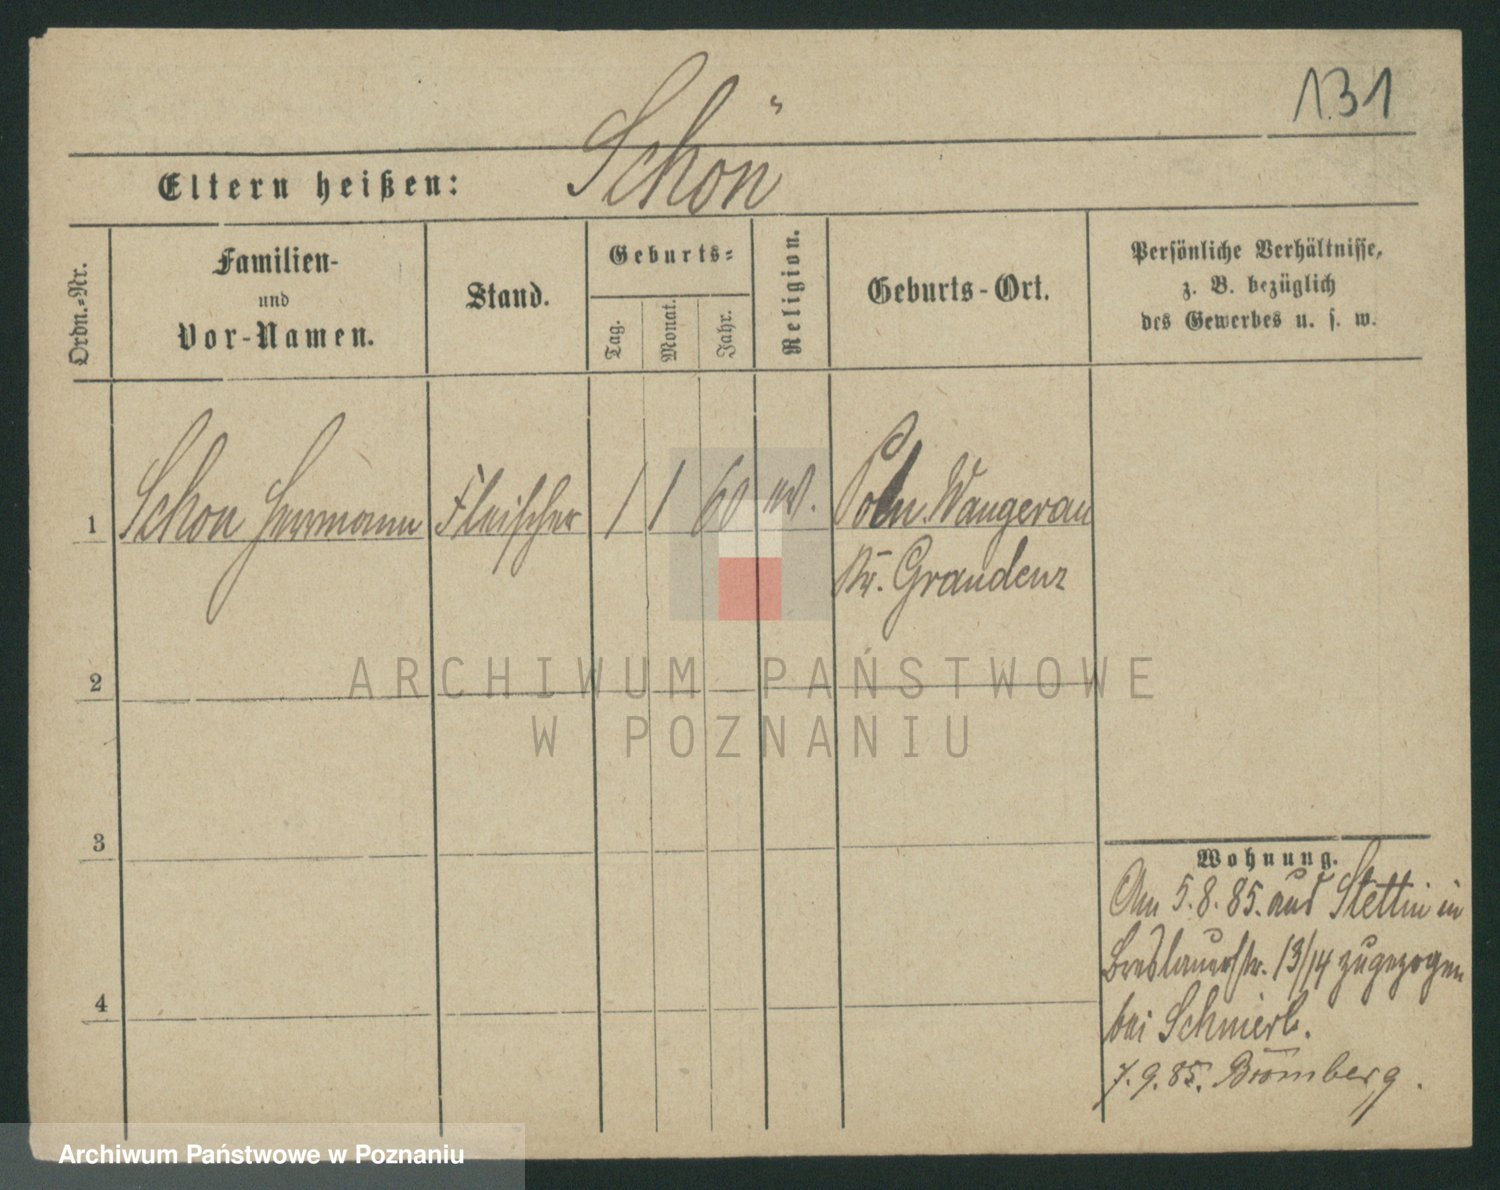 131
Schön
Eltern heißen:
Ordn.-Nr.
Familien-
und
Vor-Namen.
Stand.
Geburts-
Tag.
Monat.
Jahr.
Religion.
Geburts-Ort.
Persönliche Verhältnisse,
z. B. bezüglich
des Gewerbes u. s. w.
1 Schön Herrmann Fleischer 1 1 60 ev. Poln. Wangerau
Kr. Graudenz
ARCHIWUM PAŃSTWOWE
W POZNANIU
2
3
4
Wohnung.
Am 5.8.85. aus Stettin in
Breslauerstr. 13/14 zugezogen
bei
7.9.85. Bromberg.
Archiwum Państwowe w Poznaniu